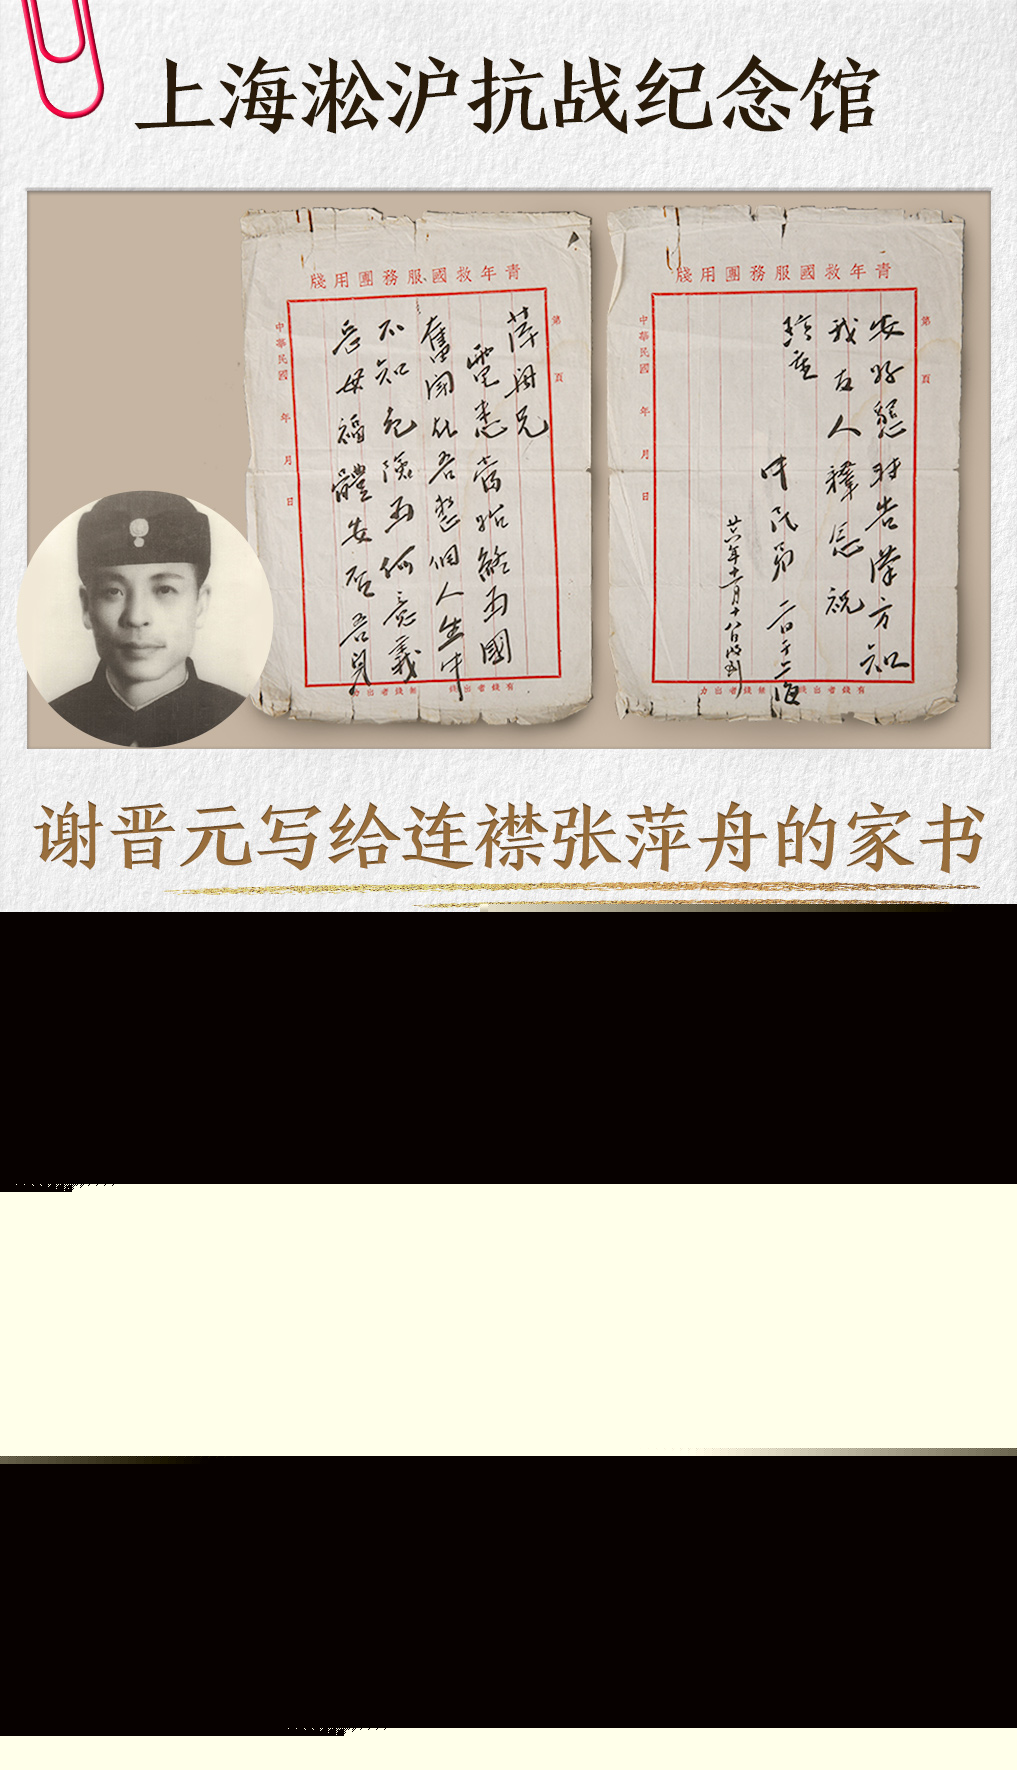 上海淞沪抗战纪念馆
青年救國服務團用牋
第 頁
萍舟兄
電悉當始終為國
奮鬥在吾整個人生中
不知危險為何意義
岳母福體安否吾身
中華民國 年 月 日
有錢者出錢 無錢者出力
青年救國服務團用牋
第 頁
安好懇轉告漢方知
我友人釋念祝
珍重
中民弟 于上海
廿六年十一月十八日
中華民國 年 月 日
有錢者出錢 無錢者出力
谢晋元写给连襟张萍舟的家书